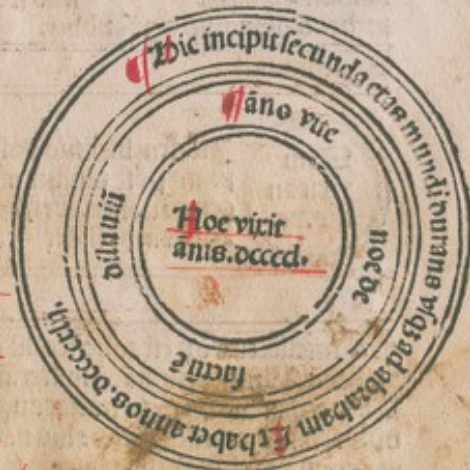 ¶ Hic incipit secunda etas mundi durans vsqȝ ad abraham Et habet annos. dccccxlij.
¶ āno vite noe dc factū ē diluuiū
Noe vixit
ānis. dccccl.